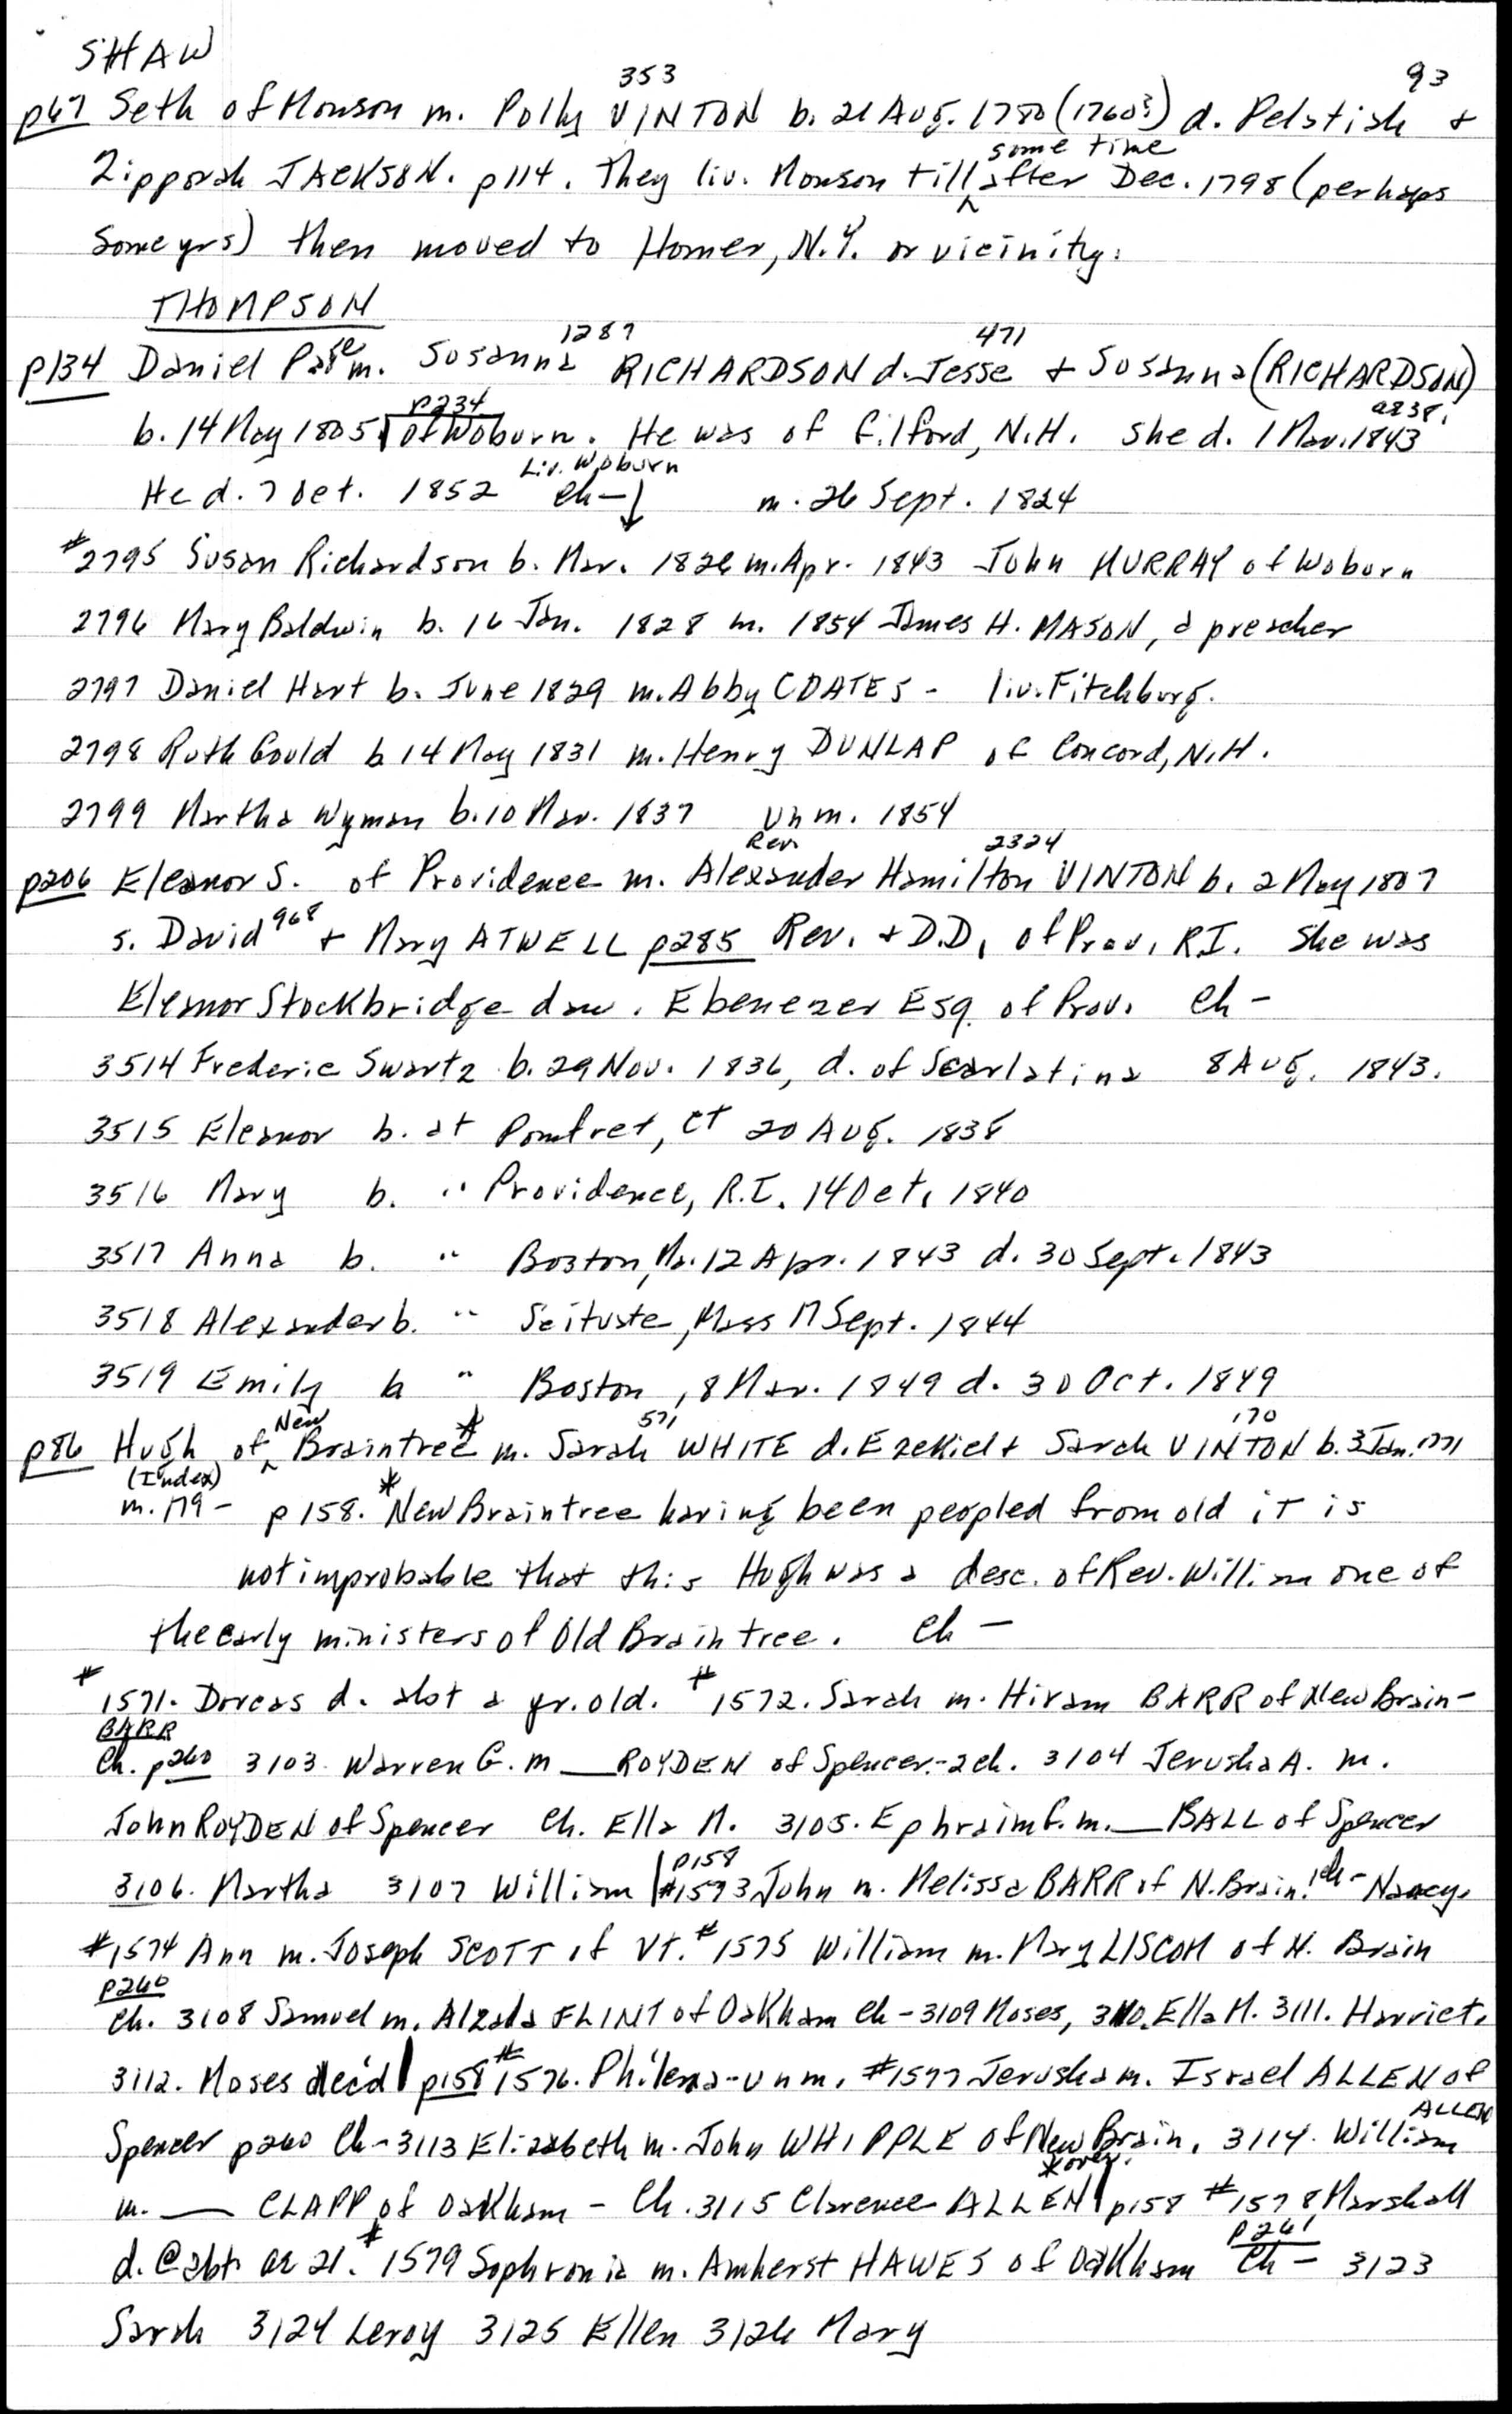 SHAW
353 93
p67 Seth of Monson m. Polly VINTON b. 21 Aug. 1780 (1760?) d. Pelatiah +
some time
Zipporah JACKSON. p114. They liv. Monson till ^ after Dec. 1798 (perhaps
some yrs) then moved to Homer, N.Y. or vicinity.
THOMPSON
1287 471
p134 Daniel m. Susanna RICHARDSON d. Jesse + Susanna (RICHARDSON)
p234 ae38.
b. 14 May 1805 of Woburn. He was of Gilford, N.H. she d. 1 Mar. 1843
Liv. Woburn
He d. 7 Oct. 1852 Ch - ↓ m. 26 Sept. 1824
#2795 Susan Richardson b. Mar. 1826 m. Apr. 1843 John MURRAY of Woburn
2796 Mary Baldwin b. 16 Jan. 1828 m. 1854 James H. MASON, a preacher
2797 Daniel Hart b. June 1829 m. Abby COATES - liv. Fitchburg.
2798 Ruth Gould b 14 May 1831 m. Henry DUNLAP of Concord, N.H.
2799 Martha Wyman b. 10 Mar. 1837 unm. 1854
Rev. 2324
p206 Eleanor S. of Providence m. Alexander Hamilton VINTON b. 2 May 1807
s. David 968 + Mary ATWELL p285 Rev. + D.D. of Prov. R.I. She was
Eleanor Stockbridge dau. Ebenezer Esq. of Prov. Ch -
3514 Frederic Swartz b. 29 Nov. 1836, d. of Scarlatina 8 Aug. 1843.
3515 Eleanor b. at Pomfret, Ct 20 Aug. 1838
3516 Mary b. " Providence, R.I. 14 Oct. 1840
3517 Anna b. " Boston, Ma. 12 Apr. 1843 d. 30 Sept. 1843
3518 Alexander b. " Scituate, Mass 17 Sept. 1844
3519 Emily b " Boston, 8 Mar. 1849 d. 30 Oct. 1849
New * 571 170
p86 Hugh of ^ Braintree m. Sarah WHITE d. Ezekiel + Sarah VINTON b. 3 Jan. 1771
(Index)
m. 179- p 158. * New Braintree having been peopled from old it is
not improbable that this Hugh was a desc. of Rev. William one of
the early ministers of Old Braintree. Ch -
#1571. Dorcas d. abt a yr. old. #1572. Sarah m. Hiram BARR of New Brain-
BARR
Ch. p260 3103. Warren G. m __ ROYDEN of Spencer. - 2 ch. 3104 Jerusha A. m.
John ROYDEN of Spencer Ch. Ella M. 3105. Ephraim G. m. __ BALL of Spencer
3106. Martha 3107 William | p158 #1573 John m. Melissa BARR of N. Brain. 1 ch - Nancy.
#1574 Ann m. Joseph SCOTT of Vt. #1575 William m. Mary LISCOM of N. Brain
p260
Ch. 3108 Samuel m. Alzada FLINT of Oakham Ch - 3109 Moses, 3110. Ella M. 3111. Harriet.
3112. Moses dec'd | p158 #1576. Philena - unm. #1577 Jerusha m. Israel ALLEN of
ALLEN
Spencer p260 Ch - 3113 Elizabeth m. John WHIPPLE of New Brain. 3114. William
* over.
m. __ CLAPP of Oakham - Ch. 3115 Clarence ALLEN | p158 #1578 Marshall
p261
d. @ abt ae 21. #1579 Sophronia m. Amherst HAWES of Oakham Ch - 3123
Sarah 3124 Leroy 3125 Ellen 3126 Mary